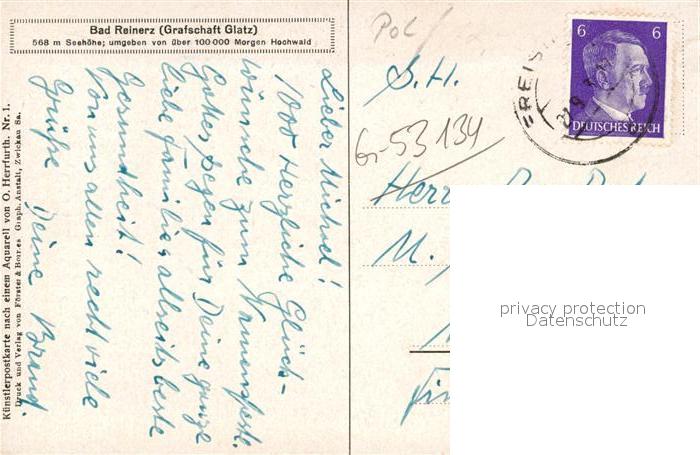 Bad Reinerz (Grafschaft Glatz)
568 m Seehöhe; umgeben von über 100000 Morgen Hochwald
Lieber Michael!
1000 Herzliche Glück-
wünsche zum Namensfeste.
Gottes Segen für Deine ganze
liebe Familie, allseits beste
Gesundheit!
Von uns allen recht viele
Grüße Deine Brand.
Künstlerpostkarte nach einem Aquarell von O. Herrfurth. Nr. 1.
Druck und Verlag von Förster & Borries Graph. Anstalt, Zwickau Sa.
POL
S.H.
G-53134
Herr
M.
6 6
DEUTSCHES REICH
privacy protection
Datenschutz